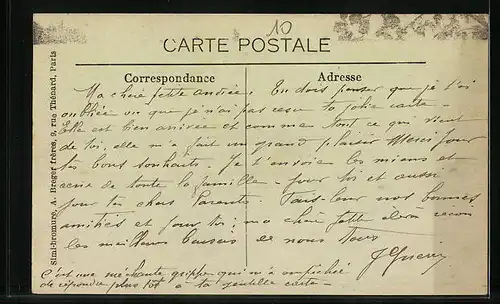 10
CARTE POSTALE
Correspondance
Adresse
Ma chère petite Andrée. Tu dois penser que je t'ai
oubliée vu que je n'ai pas reçu ta jolie carte -
Elle est bien arrivée et comme tout ce qui vient
de toi, elle m'a fait un grand plaisir Merci pour
tes bons souhaits. Je t'envoie les miens et
ceux de toute la famille - pour toi et aussi
pour tes chers Parents. Fais-leur nos bonnes
amitiés et pour toi, ma chère petite reçois
les meilleurs baisers de nous tous
J Guerin
C'est une méchante grippe qui m'a empêchée
de répondre plus tôt à ta gentille carte -
Simi-bromure, A. Breger frères, 9, rue Thénard, Paris